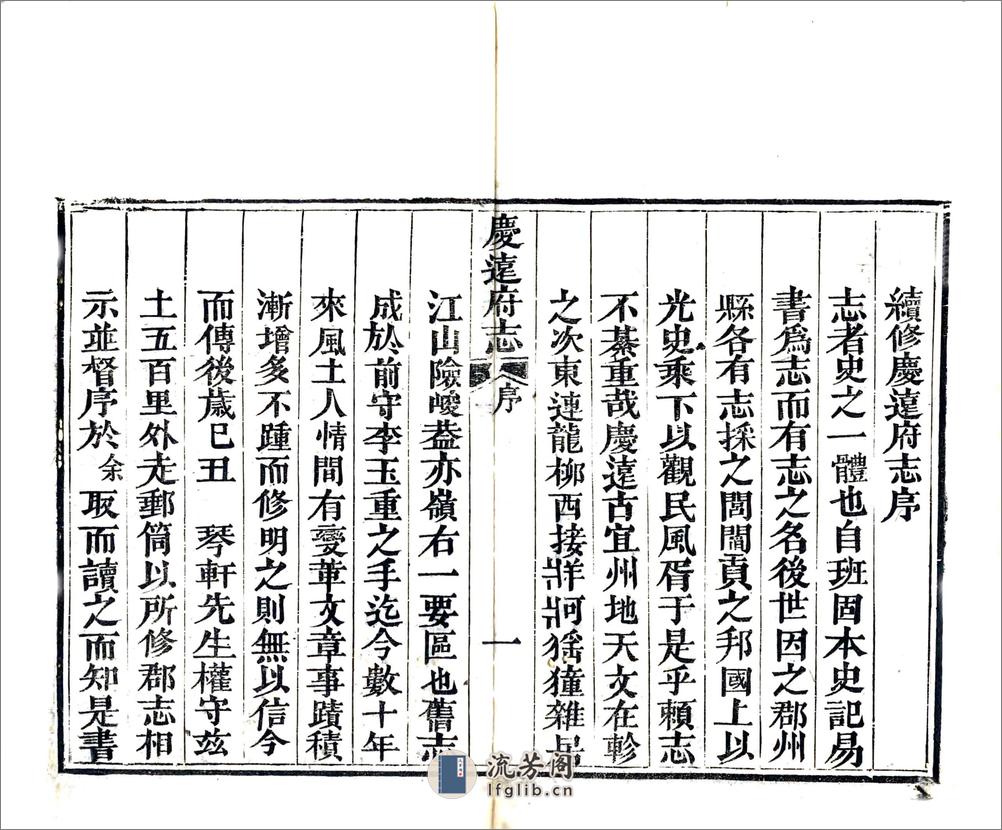 續修慶遠府志序
志者史之一體也自班固本史記易
書爲志而有志之名後世因之郡州
縣各有志採之閭閻貢之邦國上以
光史乘下以觀民風胥于是乎賴志
不綦重哉慶遠古宜州地天文在軫
之次東連龍柳西接牂牁猺獞雜居
慶遠府志 序 一
江山險峻葢亦嶺右一要區也舊志
成於前守李玉重之手迄今數十年
來風土人情間有變革文章事蹟積
漸增多不踵而修明之則無以信今
而傳後歲己丑 琴軒先生權守玆
土五百里外走郵筒以所修郡志相
示並督序於余取而讀之而知是書
流芳阁
lfglib.cn